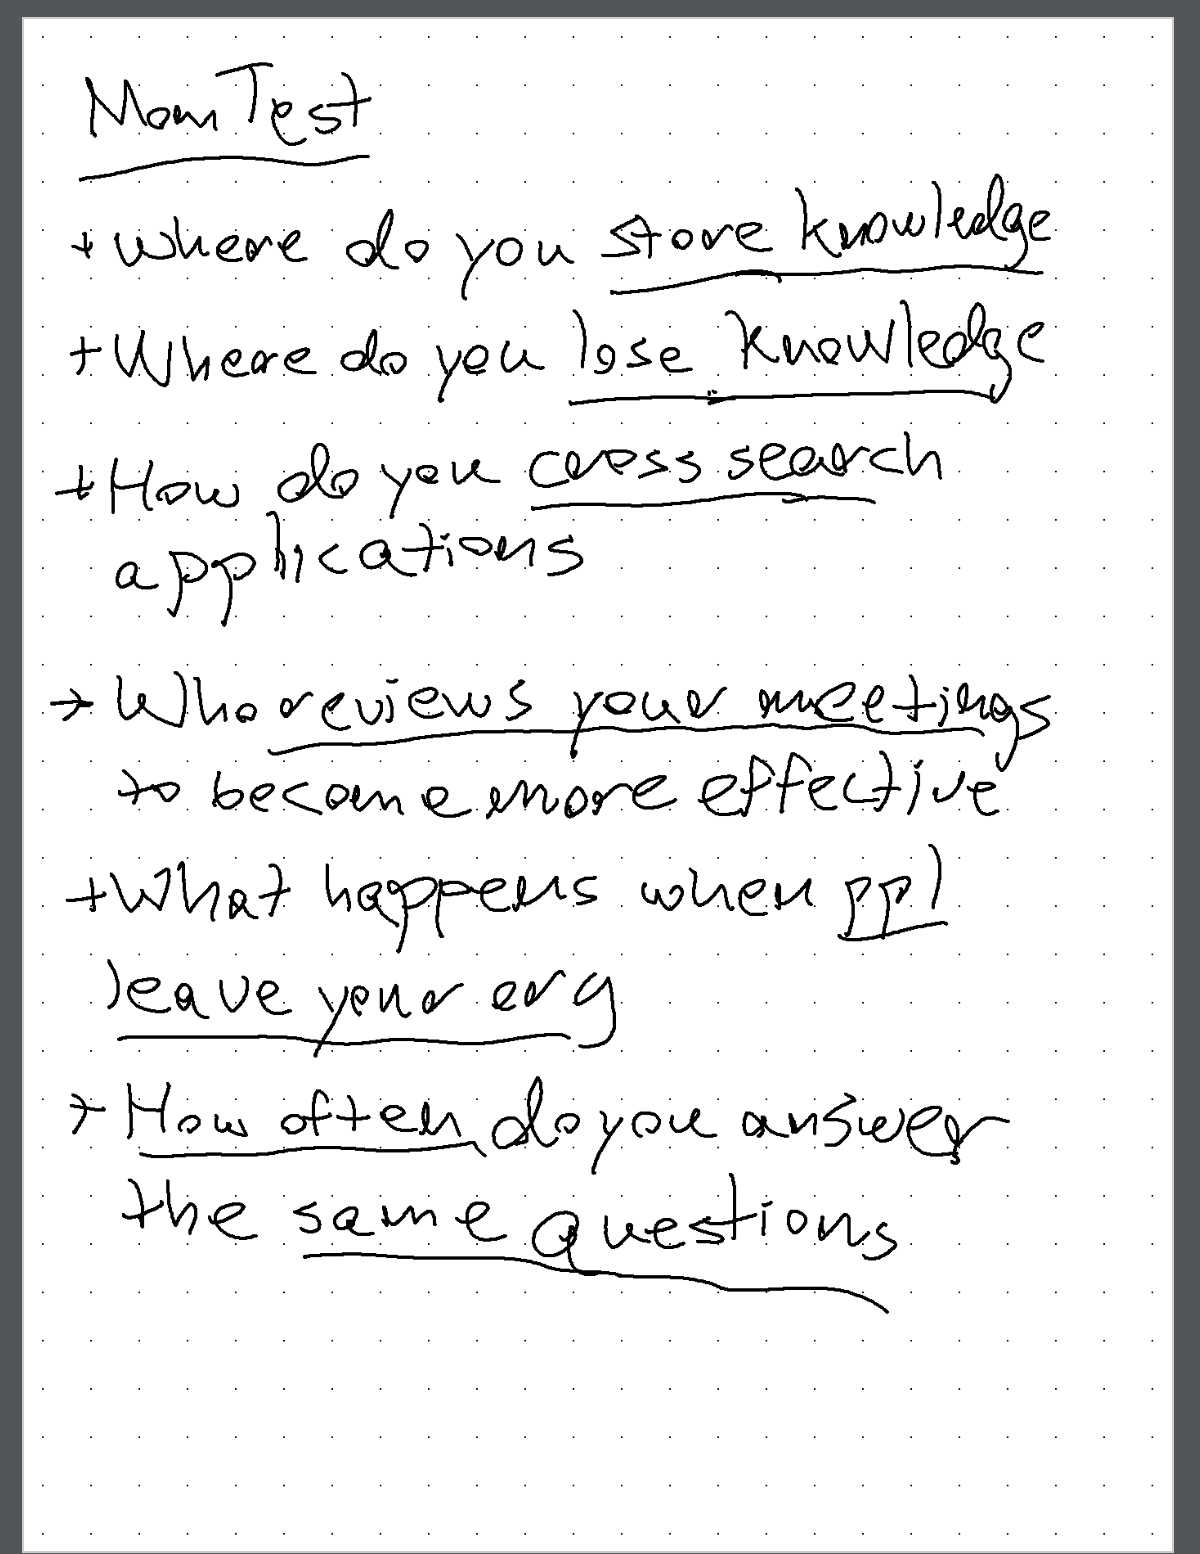 Mom Test
+ Where do you store knowledge
+ Where do you lose knowledge
+ How do you cross search
applications
→ Who reviews your meetings
to become more effective
+ What happens when ppl
leave your org
+ How often do you answer
the same questions